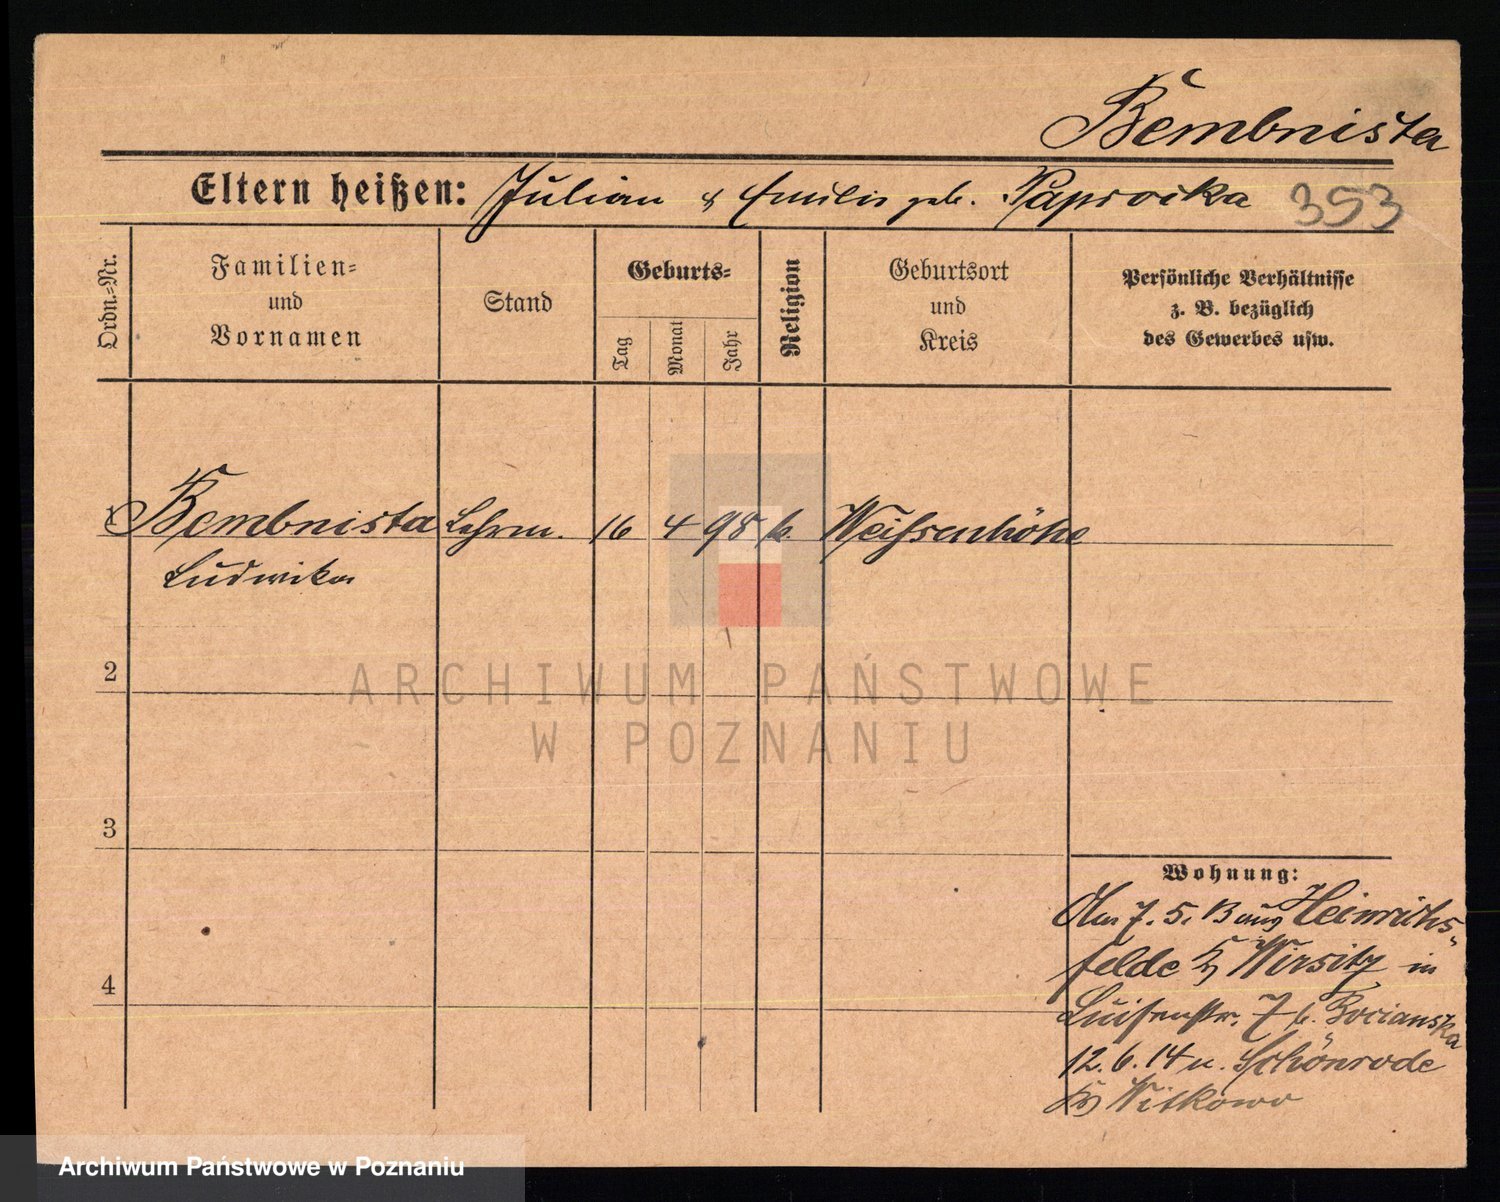 Bembnista
Eltern heißen: Julian & Emilie geb. Paprocka 353
Ordn.-Nr.
Familien-
und
Vornamen
Stand
Geburts-
Tag
Monat
Jahr
Religion
Geburtsort
und
Kreis
Persönliche Verhältnisse
z. B. bezüglich
des Gewerbes usw.
1 Bembnista Lehrm. 16 4 98 k. Weißenhöhe
Ludwika
2
ARCHIWUM PAŃSTWOWE
W POZNANIU
3
Wohnung:
Am 7. 5. 13 aus Heinrichs-
felde Kr Wirsitz in
Luisenstr. 7 b. Bocianska
12. 6. 14 n. Schönrode
4
Kr Witkowo
Archiwum Państwowe w Poznaniu